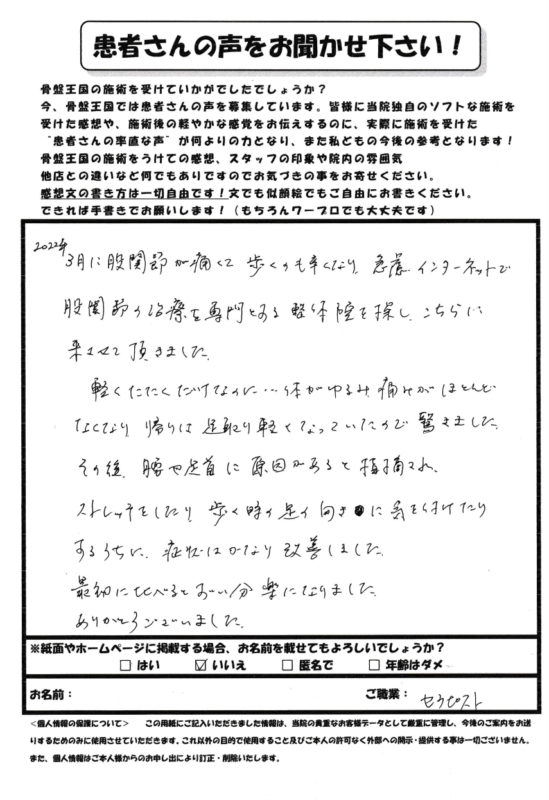 患者さんの声をお聞かせ下さい！
骨盤王国の施術を受けていかがでしたでしょうか？
今、骨盤王国では患者さんの声を募集しています。皆様に当院独自のソフトな施術を
受けた感想や、施術後の軽やかな感覚をお伝えするのに、実際に施術を受けた
“患者さんの率直な声”が何よりの力となり、また私どもの今後の参考となります！
骨盤王国の施術をうけての感想、スタッフの印象や院内の雰囲気
他店との違いなど何でもありですのでお気づきの事をお寄せください。
感想文の書き方は一切自由です！文でも似顔絵でもご自由にお書きください。
できれば手書きでお願いします！（もちろんワープロでも大丈夫です）
2022年
3月に股関節が痛くて歩くのも辛くなり、急遽インターネットで
股関節の治療を専門とする整体院を探し、こちらに
来させて頂きました。
軽くたたくだけなのに…体がゆるみ痛みがほとんど
なくなり、帰りは足取り軽くなっていたので驚きました。
その後、腰や足首に原因があると指摘され、
ストレッチをしたり歩く時の足の向きに気を付けたり
するうちに、症状はかなり改善しました。
最初に比べるとずい分楽になりました。
ありがとうございました。
※紙面やホームページに掲載する場合、お名前を載せてもよろしいでしょうか？
□ はい ☑ いいえ □ 匿名で □ 年齢はダメ
お名前： ご職業： セラピスト
＜個人情報の保護について＞ この用紙にご記入いただきました情報は、当院の貴重なお客様データとして厳重に管理し、今後のご案内をお送
りするためのみに使用させていただきます。これ以外の目的で使用すること及びご本人の許可なく外部への開示・提供する事は一切ございません。
また、個人情報はご本人様からのお申し出により訂正・削除いたします。